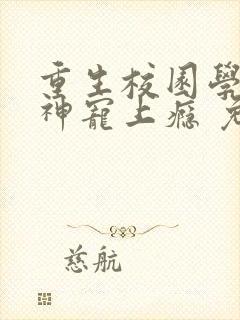 重生校园學
神寵上癮
慈航